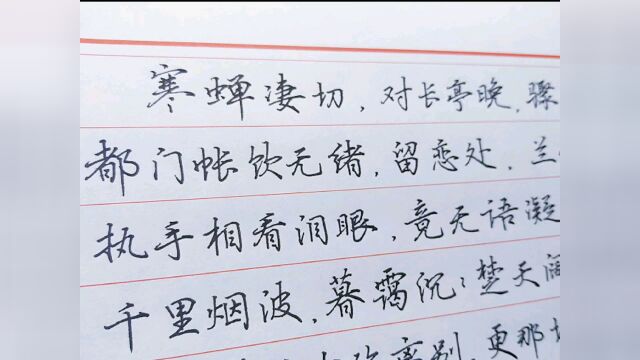 寒蝉凄切，对长亭晚，骤
都门帐饮无绪，留恋处，兰
执手相看泪眼，竟无语凝
千里烟波，暮霭沉沉楚天阔
离别，更那